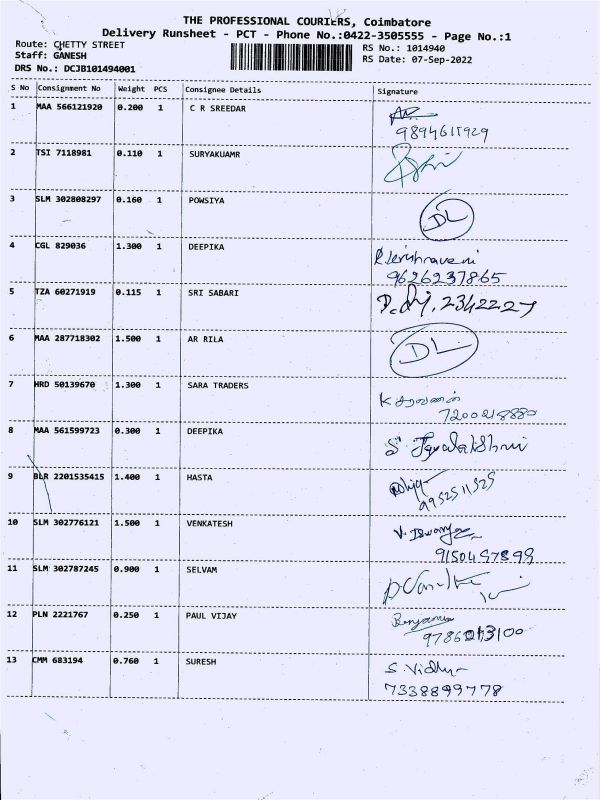 THE PROFESSIONAL COURIERS, Coimbatore
Delivery Runsheet - PCT - Phone No.:0422-3505555 - Page No.:1
Route: CHETTY STREET
RS No.: 1014940
Staff: GANESH
RS Date: 07-Sep-2022
DRS No.: DCJB101494001
S No Consignment No Weight PCS Consignee Details Signature
1 MAA 566121920 0.200 1 C R SREEDAR
9894611929
2 TSI 7118981 0.110 1 SURYAKUAMR
3 SLM 302808297 0.160 1 POWSIYA DL
4 CGL 829036 1.300 1 DEEPIKA
9626237865
5 TZA 60271919 0.115 1 SRI SABARI 2342227
6 MAA 287718302 1.500 1 AR RILA DL
7 HRD 50139670 1.300 1 SARA TRADERS K சரவணன்
7200218880
8 MAA 561599723 0.300 1 DEEPIKA S Jayalakshmi
9 BLR 2201535415 1.400 1 HASTA
9952511525
10 SLM 302776121 1.500 1 VENKATESH
9150497899
11 SLM 302787245 0.900 1 SELVAM
12 PLN 2221767 0.250 1 PAUL VIJAY
13 CMM 683194 0.760 1 SURESH S. Vidhya
7338899778